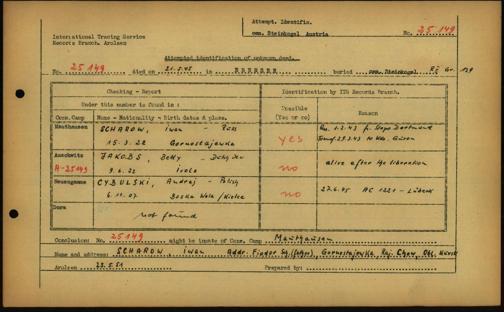 Attempt. Identific.
cem. Steinkogel Austria
No. 25 149
International Tracing Service
Records Branch, Arolsen
Attempted identification of unknown dead.
No. 25 149 died on 21.5.45 in EBENSEE buried cem. Steinkogel Gr. 129
Checking - Report
Identification by ITS Records Branch.
Under this number is found in :
Possible (Yes or no)
Reason
Conc.Camp
Name - Nationality - Birth dates & place.
Mauthausen
SCHAROW, Iwan - Russ
15.3.22 Gornostajewka
yes
1.2.43 Stapo Dortmund
29.3.43 to Kdo. Gusen
Auschwitz
A-25149
JAKOBS, Betty - Dutch Jew
9.6.22
no
alive after the liberation
Neuengamme
CYBULSKI, Andrej - Polish
6.11.07 Boska Wola / Kielce
no
27.6.45 AC 1221 - Lübeck
Dora
not found
Conclusion: No. 25149 might be inmate of Conc. Camp Mauthausen
Name and address: SCHAROW, Iwan Addr. Fiodor Gornostajewka,
Arolsen 23.5.51 Prepared by: